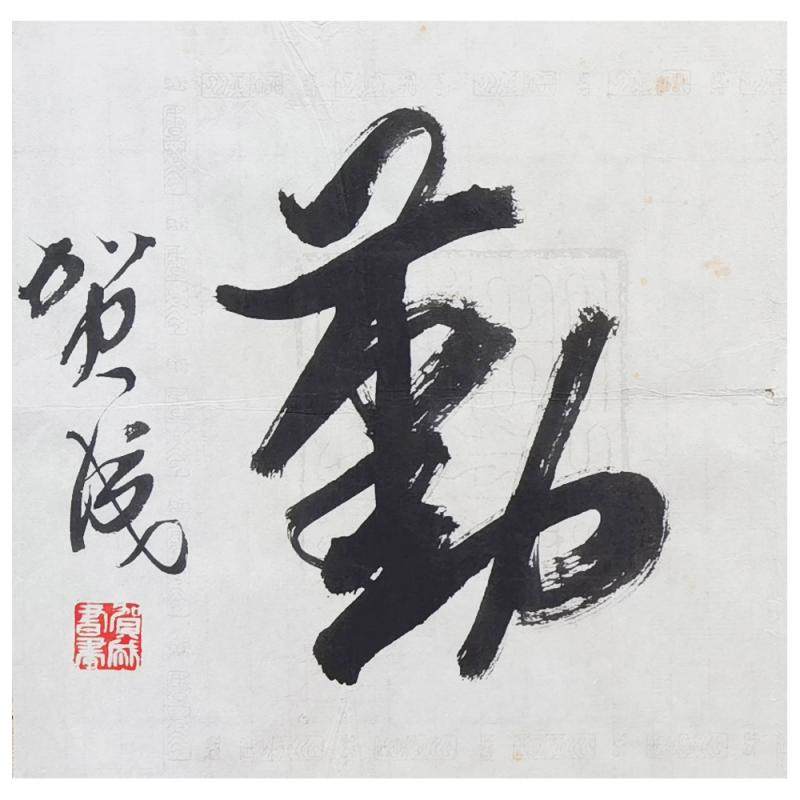 勤
贺成
贺成書畫